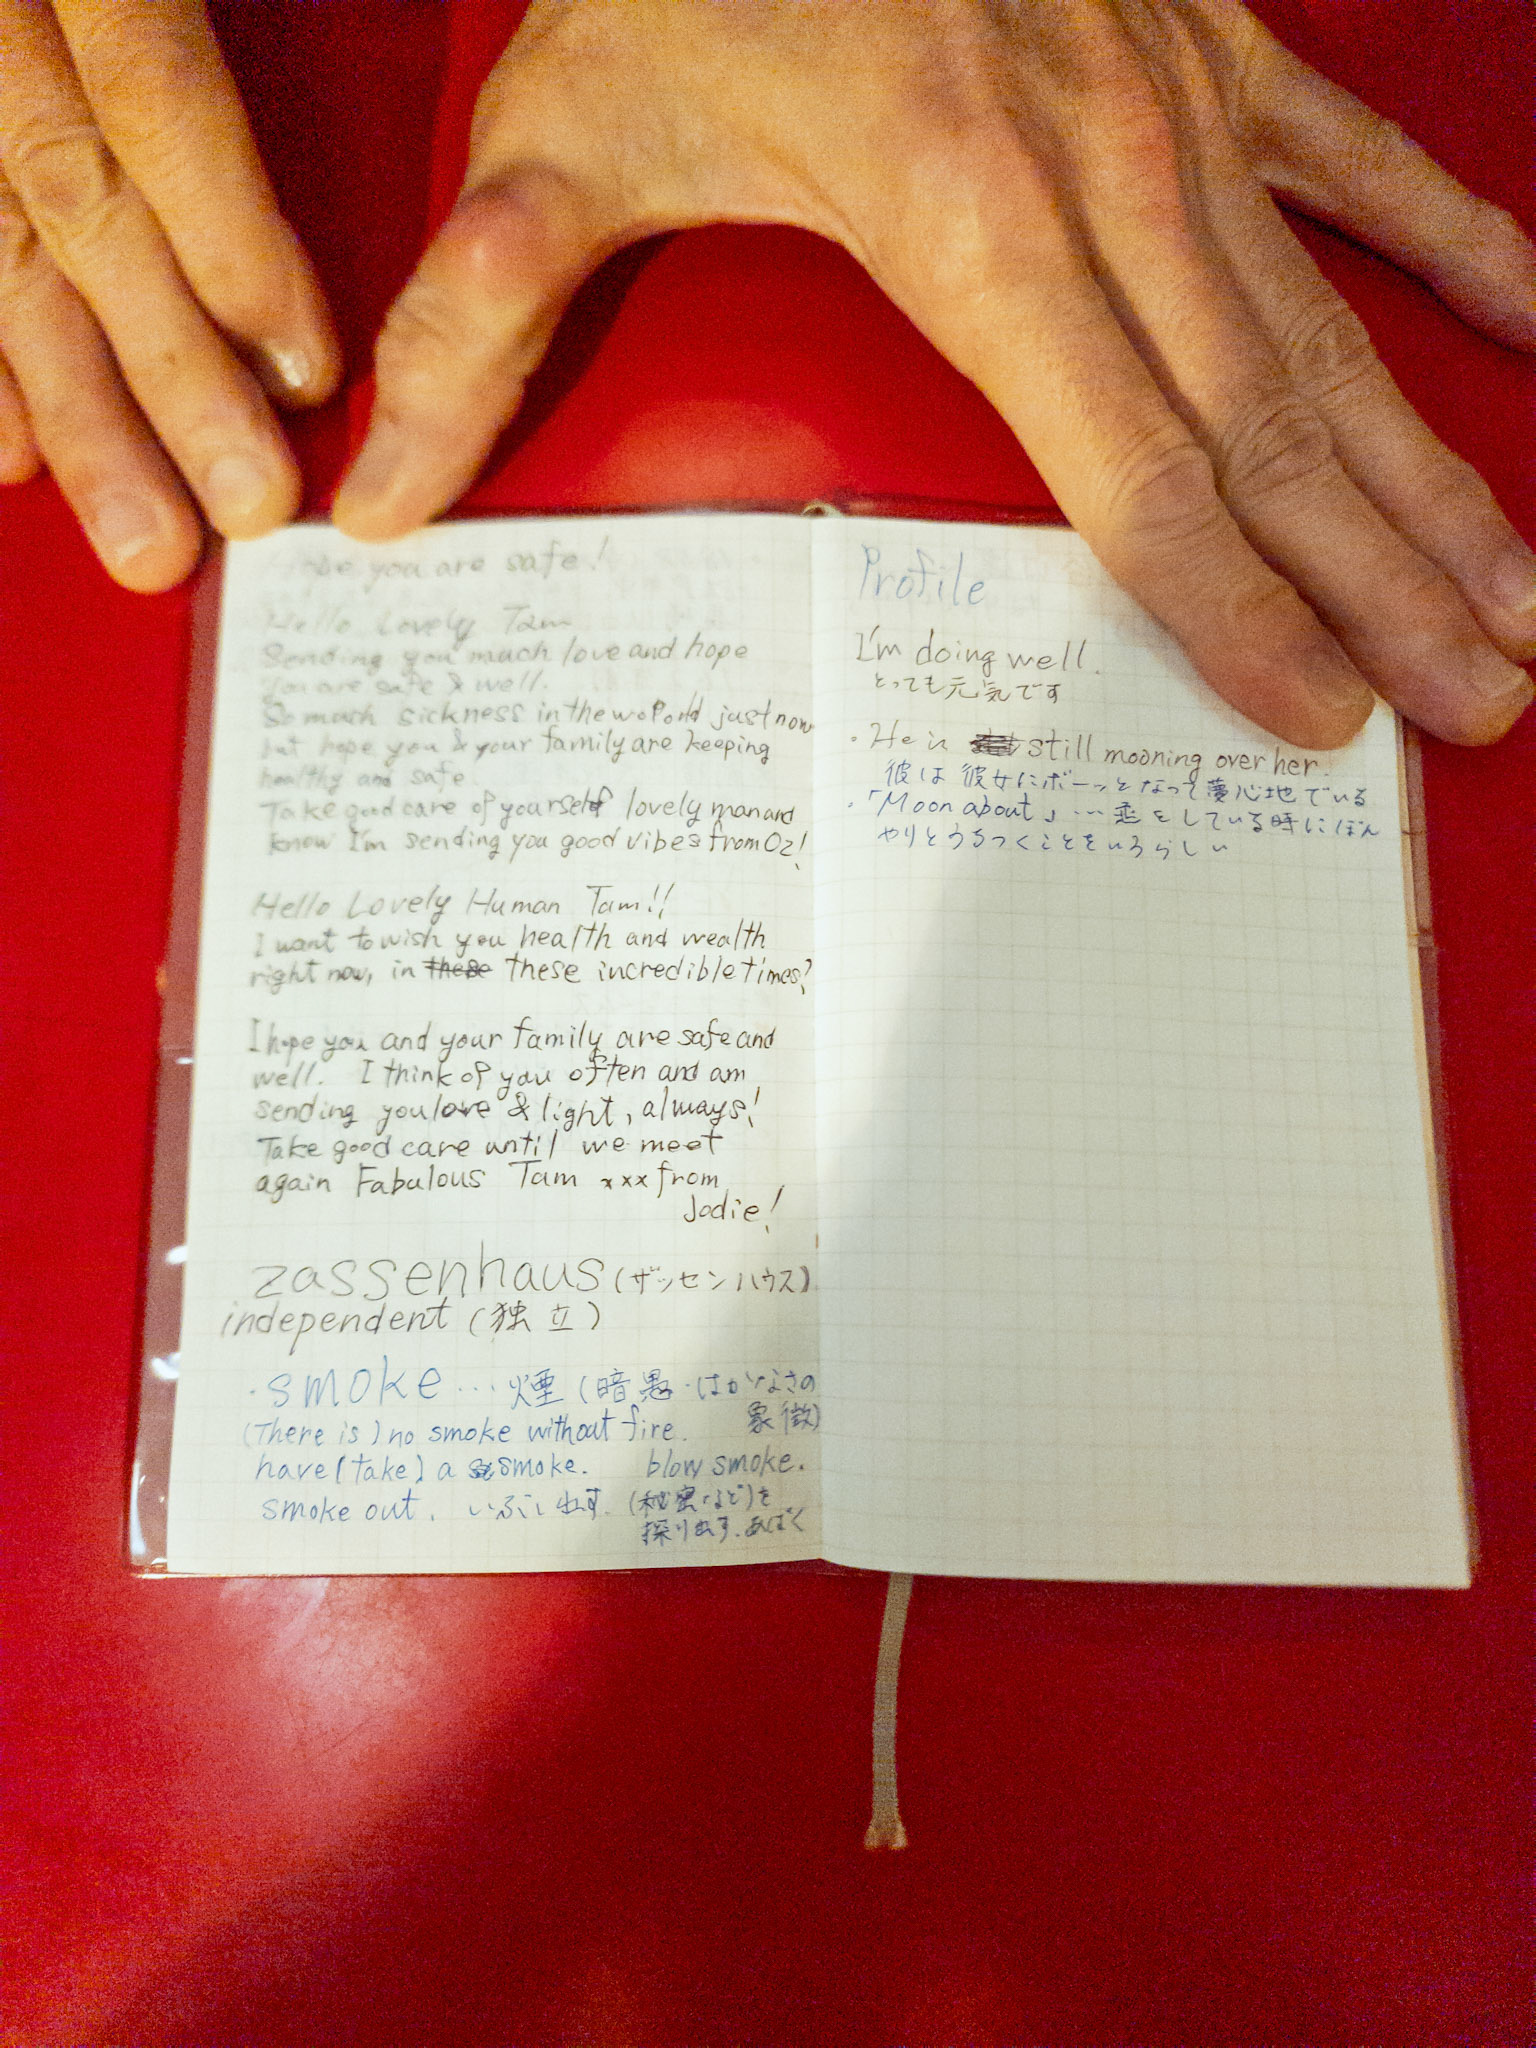 Hope you are safe!
Hello Lovely Tam
Sending you much love and hope
you are safe & well.
So much sickness in the world just now
but hope you & your family are keeping
healthy and safe.
Take good care of yourself lovely man and
know I'm sending you good vibes from Oz!
Hello Lovely Human Tam!!
I want to wish you health and wealth
right now, in these these incredible times!
I hope you and your family are safe and
well. I think of you often and am
sending you love & light, always!
Take good care until we meet
again Fabulous Tam xxx from
Jodie!
zassenhaus (ザッセンハウス)
independent (独立)
・smoke … 煙 (暗愚・はかなさの
象徴)
(There is) no smoke without fire.
have (take) a smoke. blow smoke.
smoke out. いぶし出す. (秘密など)を
探り出す. あばく
Profile
I'm doing well.
とっても元気です
・He is still mooning over her.
彼は彼女にボーッとなって夢心地でいる
・「Moon about」… 恋をしている時にぼん
やりとうろつくことをいうらしい